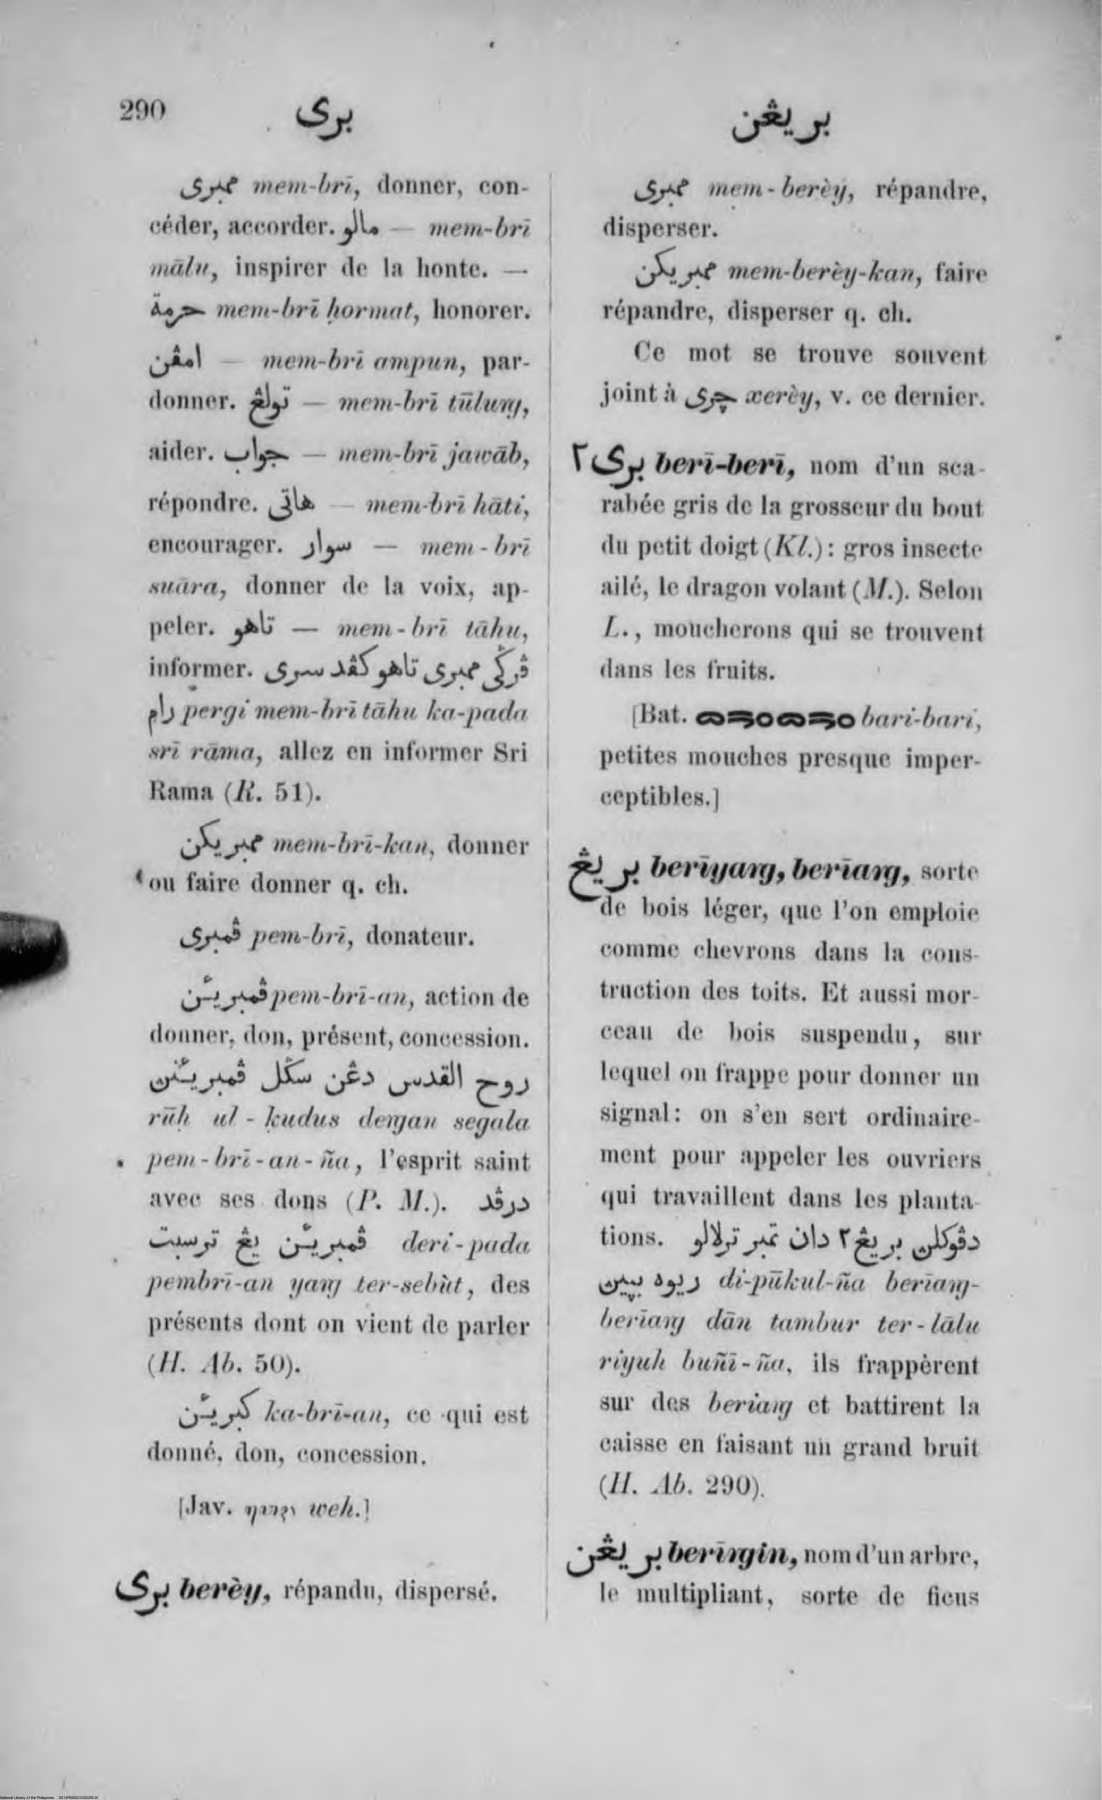 290
برى
بريڠن
ممبرى mem-brī, donner, con-
céder, accorder. مالو — mem-brī
mālu, inspirer de la honte. —
حرمة mem-brī ḥormat, honorer.
امڤن — mem-brī ampun, par-
donner. تولڠ — mem-brī tūluŋg,
aider. جواب — mem-brī jawāb,
répondre. هاتى — mem-brī hāti,
encourager. سوار — mem-brī
suāra, donner de la voix, ap-
peler. تاهو — mem-brī tāhu,
informer. ڤرڬى ممبرى تاهو كڤد سرى
رام pergi mem-brī tāhu ka-pada
srī rāma, allez en informer Sri
Rama (R. 51).
ممبريكن mem-brī-kan, donner
ou faire donner q. ch.
ڤمبرى pem-brī, donateur.
ڤمبريئن pem-brī-an, action de
donner, don, présent, concession.
روح القدس دڠن سڬل ڤمبريئنن
rūḥ ul-ḳudus deŋgan segala
pem-brī-an-ña, l'esprit saint
avec ses dons (P. M.). درڤد
ڤمبريئن يڠ ترسبت deri-pada
pembrī-an yaŋg ter-sebùt, des
présents dont on vient de parler
(H. Ab. 50).
كبريئن ka-brī-an, ce qui est
donné, don, concession.
[Jav. weh.]
برى berèy, répandu, dispersé.
ممبرى mem-berèy, répandre,
disperser.
ممبريكن mem-berèy-kan, faire
répandre, disperser q. ch.
Ce mot se trouve souvent
joint à چرى xerèy, v. ce dernier.
برى٢ berī-berī, nom d'un sca-
rabée gris de la grosseur du bout
du petit doigt (Kl.): gros insecte
ailé, le dragon volant (M.). Selon
L., moucherons qui se trouvent
dans les fruits.
[Bat. bari-bari,
petites mouches presque imper-
ceptibles.]
بريڠ berīyaŋg, berīaŋg, sorte
de bois léger, que l'on emploie
comme chevrons dans la cons-
truction des toits. Et aussi mor-
ceau de bois suspendu, sur
lequel on frappe pour donner un
signal: on s'en sert ordinaire-
ment pour appeler les ouvriers
qui travaillent dans les planta-
tions. دڤوكلن بريڠ٢ دان تمبر ترلالو
ريوه بپين di-pūkul-ña berīaŋg-
berīaŋg dān tambur ter-lālu
riyuh buñī-ña, ils frappèrent
sur des beriaŋg et battirent la
caisse en faisant un grand bruit
(H. Ab. 290).
بريڠن berīŋgin, nom d'un arbre,
le multipliant, sorte de ficus